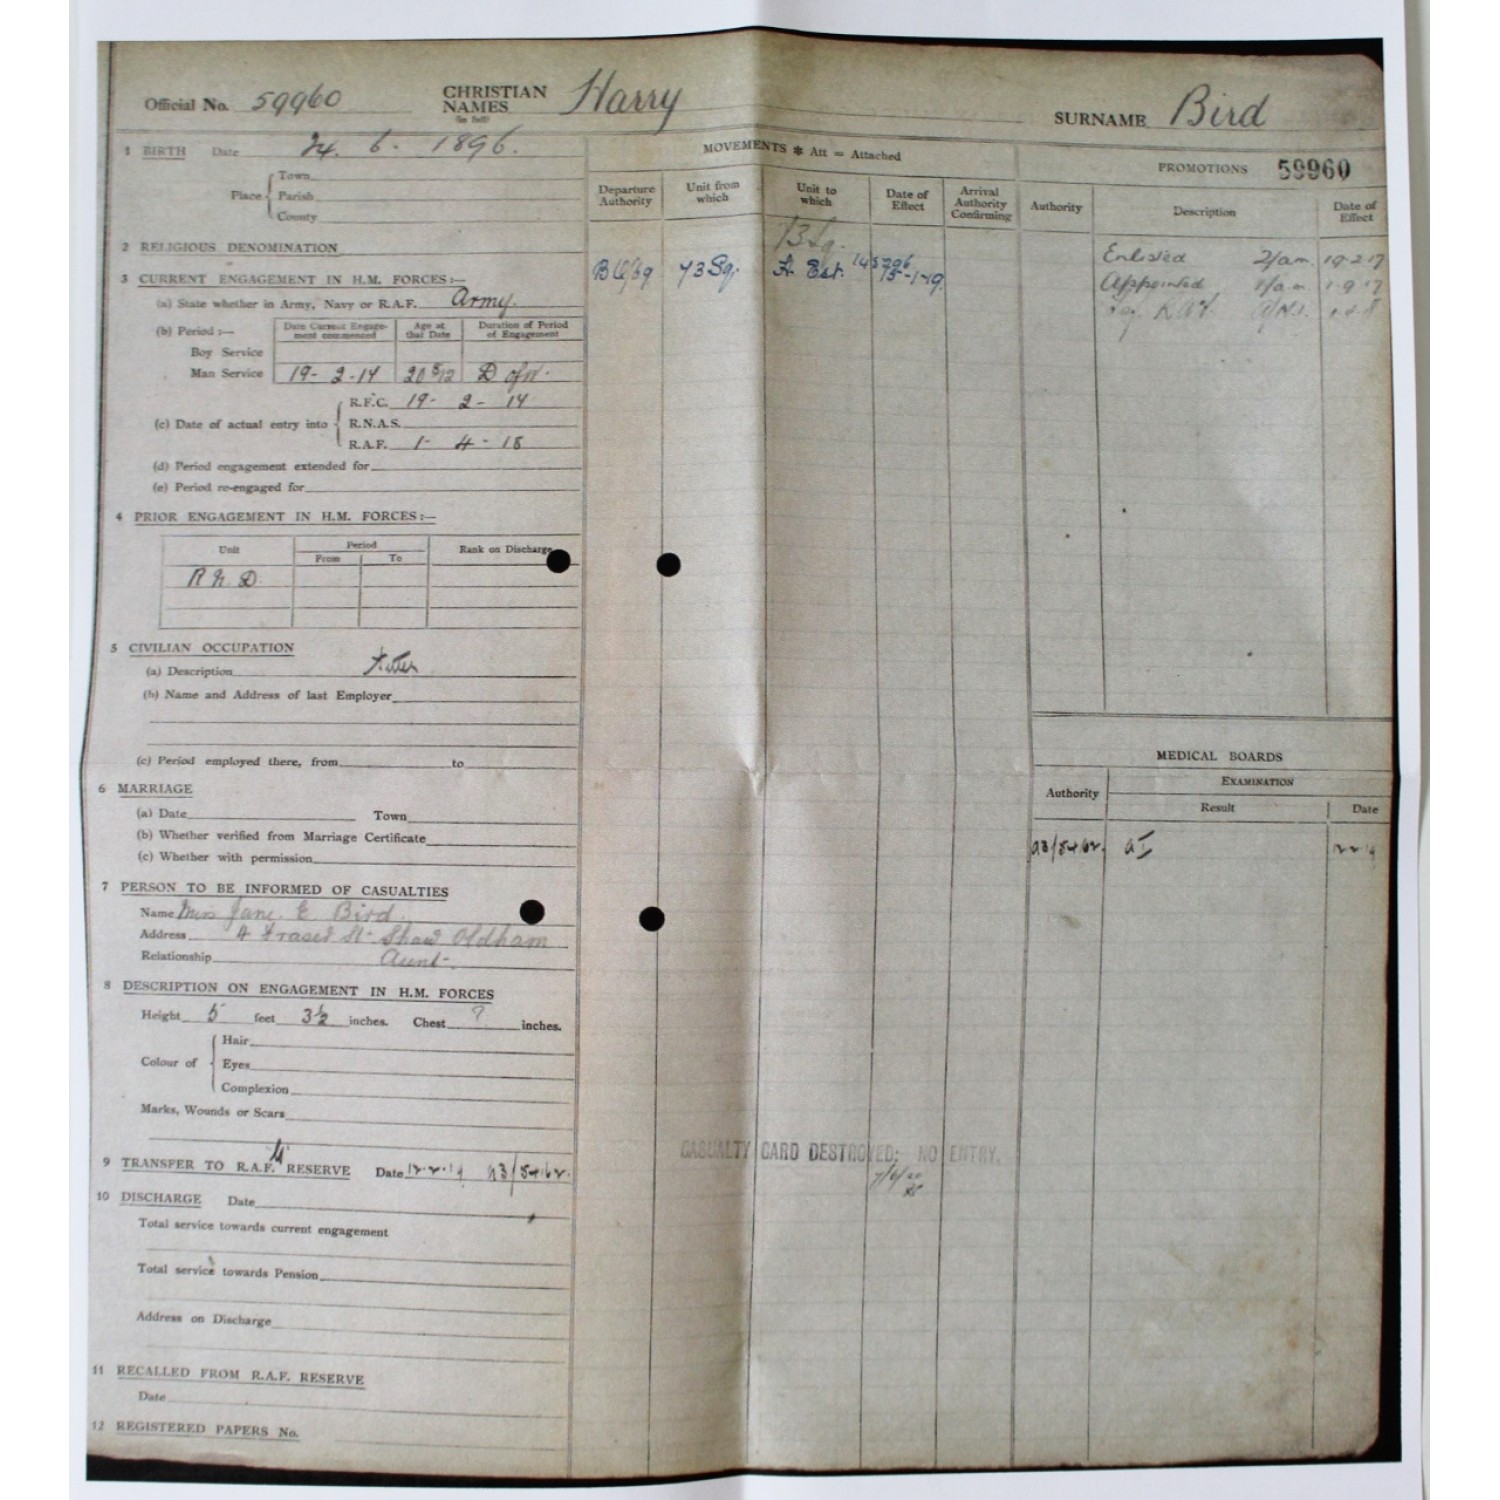 Official No. 59960 CHRISTIAN NAMES (in full) Harry SURNAME Bird
1 BIRTH Date 24. 6. 1896.
Place Town
Parish
County
2 RELIGIOUS DENOMINATION
3 CURRENT ENGAGEMENT IN H.M. FORCES:—
(a) State whether in Army, Navy or R.A.F. Army.
(b) Period :— Date Current Engagement commenced Age at that Date Duration of Period of Engagement
Boy Service
Man Service 19- 2-17 20 8/12 D of W.
(c) Date of actual entry into R.F.C. 19- 2- 17
R.N.A.S.
R.A.F. 1- 4- 18
(d) Period engagement extended for
(e) Period re-engaged for
4 PRIOR ENGAGEMENT IN H.M. FORCES:—
Unit Period Rank on Discharge
From To
R N. D.
5 CIVILIAN OCCUPATION
(a) Description Fitter
(b) Name and Address of last Employer
(c) Period employed there, from to
6 MARRIAGE
(a) Date Town
(b) Whether verified from Marriage Certificate
(c) Whether with permission
7 PERSON TO BE INFORMED OF CASUALTIES
Name Miss Jane. E Bird.
Address 4 Fraser St- Shaw Oldham
Relationship Aunt-
8 DESCRIPTION ON ENGAGEMENT IN H.M. FORCES
Height 5 feet 3½ inches. Chest ? inches.
Colour of Hair
Eyes
Complexion
Marks, Wounds or Scars
9 TRANSFER TO R.A.F. RESERVE Date 12.2.19 A3/5462.
10 DISCHARGE Date
Total service towards current engagement
Total service towards Pension
Address on Discharge
11 RECALLED FROM R.A.F. RESERVE
Date
12 REGISTERED PAPERS No.
MOVEMENTS * Att = Attached
Departure Authority Unit from which Unit to which Date of Effect Arrival Authority Confirming
73 Sq.
73 Sq. 15-1-19.
CASUALTY CARD DESTROYED: NO ENTRY.
PROMOTIONS 59960
Authority Description Date of Effect
Enlisted 2/am. 19-2-17
Appointed 1/a.m. 1-9-17
R.A.F. 1-4-8
MEDICAL BOARDS
Authority EXAMINATION
Result Date
A3/5462. A I